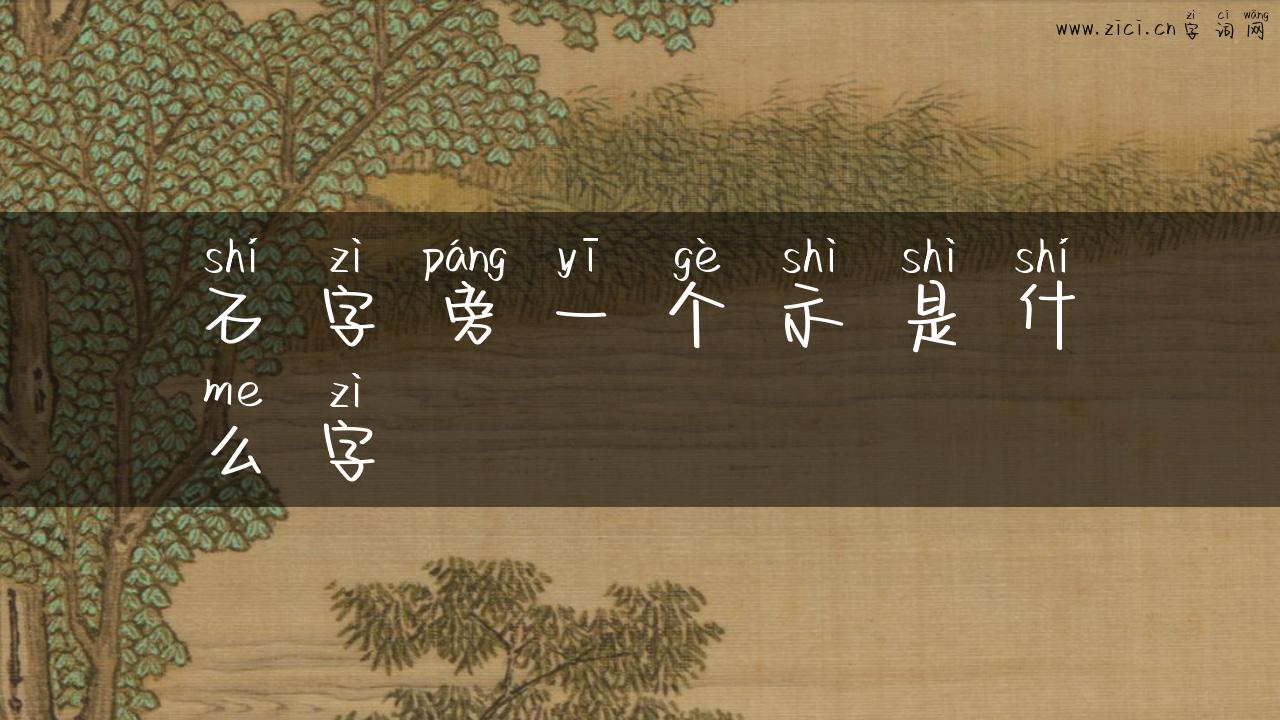 zì cí wǎng
www.zici.cn 字 词 网
shí zì páng yī gè shì shì shí
石 字 旁 一 个 示 是 什
me zì
么 字